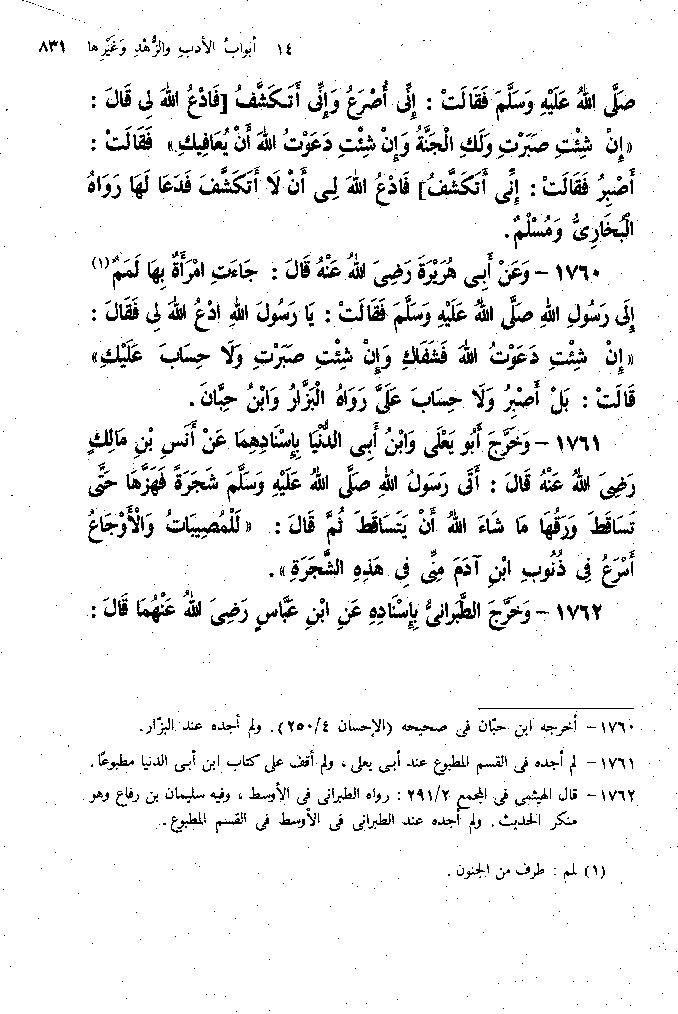 ١٤ أبوابُ الأدبِ والزُّهْدِ وَغَيْرِها ٨٣١
صَلَّى اللهُ عَلَيْهِ وَسَلَّمَ فَقَالَتْ : إِنِّى أُصْرَعُ وَإِنِّى أَتَكَشَّفُ [فَادْعُ اللهَ لِى قَالَ :
«إِنْ شِئْتِ صَبَرْتِ وَلَكِ الْجَنَّةُ وَإِنْ شِئْتِ دَعَوْتُ اللهَ أَنْ يُعَافِيكِ» فَقَالَتْ :
أَصْبِرُ فَقَالَتْ : إِنِّى أَتَكَشَّفُ] فَادْعُ اللهَ لِى أَنْ لَا أَتَكَشَّفَ فَدَعَا لَهَا رَوَاهُ
الْبُخَارِىُّ وَمُسْلِمٌ.
١٧٦٠ – وَعَنْ أَبِى هُرَيْرَةَ رَضِىَ اللهُ عَنْهُ قَالَ : جَاءَتِ امْرَأَةٌ بِهَا لَمَمٌ (١)
إِلَى رَسُولِ اللهِ صَلَّى اللهُ عَلَيْهِ وَسَلَّمَ فَقَالَتْ : يَا رَسُولَ اللهِ ادْعُ اللهَ لِى فَقَالَ :
«إِنْ شِئْتِ دَعَوْتُ اللهَ فَشَفَاكِ وَإِنْ شِئْتِ صَبَرْتِ وَلَا حِسَابَ عَلَيْكِ»
قَالَتْ : بَلْ أَصْبِرُ وَلَا حِسَابَ عَلَىَّ رَوَاهُ الْبَزَّارُ وَابْنُ حِبَّانَ.
١٧٦١ – وَخَرَّجَ أَبُو يَعْلَى وَابْنُ أَبِى الدُّنْيَا بِإِسْنَادِهِمَا عَنْ أَنَسِ بْنِ مَالِكٍ
رَضِىَ اللهُ عَنْهُ قَالَ : أَتَى رَسُولُ اللهِ صَلَّى اللهُ عَلَيْهِ وَسَلَّمَ شَجَرَةً فَهَزَّهَا حَتَّى
تَسَاقَطَ وَرَقُهَا مَا شَاءَ اللهُ أَنْ يَتَسَاقَطَ ثُمَّ قَالَ : «لَلْمُصِيبَاتُ وَالْأَوْجَاعُ
أَسْرَعُ فِى ذُنُوبِ ابْنِ آدَمَ مِنِّى فِى هَذِهِ الشَّجَرَةِ».
١٧٦٢ – وَخَرَّجَ الطَّبَرَانِىُّ بِإِسْنَادِهِ عَنِ ابْنِ عَبَّاسٍ رَضِىَ اللهُ عَنْهُمَا قَالَ :
١٧٦٠– أخرجه ابن حبّان فى صحيحه (الإحسان ٢٥٠/٤). ولم أجده عند البزّار.
١٧٦١– لم أجده فى القسم المطبوع عند أبى يعلى ، ولم أقف على كتاب ابن أبى الدنيا مطبوعًا.
١٧٦٢– قال الهيثمى فى المجمع ٢٩١/٢ : رواه الطبرانى فى الأوسط ، وفيه سليمان بن رفاع وهو
منكر الحديث. ولم أجده عند الطبرانى فى الأوسط فى القسم المطبوع.
(١) لمم : طرف من الجنون.